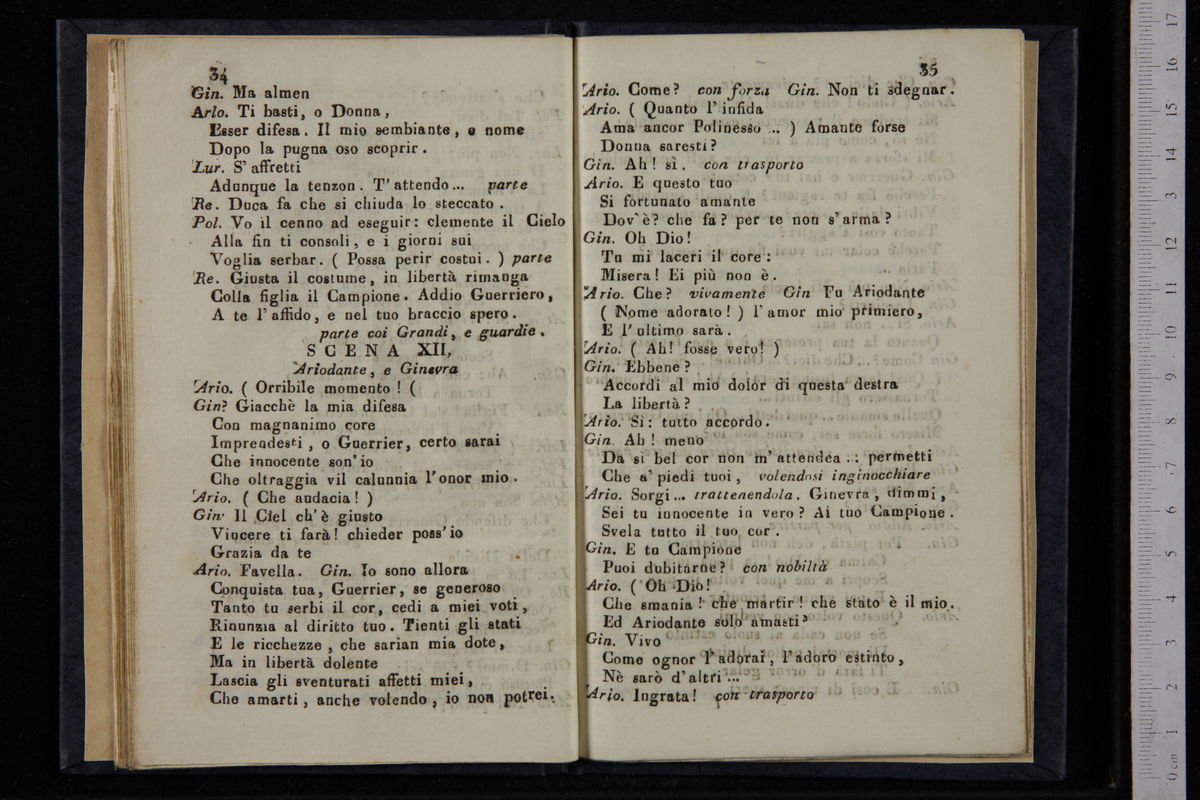 34
Gin. Ma almen
Arlo. Ti basti, o Donna,
Esser difesa. Il mio sembiante, e nome
Dopo la pugna oso scoprir.
Lur. S' affretti
Adunque la tenzon. T' attendo... parte
Re. Duca fa che si chiuda lo steccato.
Pol. Vo il cenno ad eseguir: clemente il Cielo
Alla fin ti consoli, e i giorni sui
Voglia serbar. ( Possa perir costui. ) parte
Re. Giusta il costume, in libertà rimanga
Colla figlia il Campione. Addio Guerriero,
A te l'affido, e nel tuo braccio spero.
parte coi Grandi, e guardie.
SCENA XII,
Ariodante, e Ginevra
Ario. ( Orribile momento ! (
Gin? Giacchè la mia difesa
Con magnanimo core
Imprendesti, o Guerrier, certo sarai
Che innocente son' io
Che oltraggia vil calunnia l'onor mio.
Ario. ( Che audacia! )
Gin· Il Ciel ch'è giusto
Vincere ti farà! chieder poss'io
Grazia da te
Ario. Favella. Gin. Io sono allora
Conquista tua, Guerrier, se generoso
Tanto tu serbi il cor, cedi a miei voti,
Rinunzia al diritto tuo. Tienti gli stati
E le ricchezze, che sarian mia dote,
Ma in libertà dolente
Lascia gli sventurati affetti miei,
Che amarti, anche volendo, io non potrei.
35
Ario. Come? con forza Gin. Non ti sdegnar.
Ario. ( Quanto l'infida
Ama ancor Polinesso ... ) Amante forse
Donna saresti?
Gin. Ah! sì. con trasporto
Ario. E questo tuo
Si fortunato amante
Dov'è? che fa? per te non s'arma?
Gin. Oh Dio!
Tu mi laceri il core:
Misera! Ei più non è.
Ario. Che? vivamente Gin Fu Ariodante
( Nome adorato! ) l'amor mio primiero,
E l'ultimo sarà.
Ario. ( Ah! fosse vero! )
Gin. Ebbene?
Accordi al mio dolor di questa destra
La libertà?
Ario. Sì: tutto accordo.
Gin. Ah! meno
Da sì bel cor non m'attendea .: permetti
Che a' piedi tuoi, volendosi inginocchiare
Ario. Sorgi... trattenendola. Ginevra, dimmi,
Sei tu innocente in vero? Ai tuo Campione.
Svela tutto il tuo cor.
Gin. E tu Campione
Puoi dubitarne? con nobiltà
Ario. ( Oh Dio!
Che smania! che martir! che stato è il mio.
Ed Ariodante solo amasti?
Gin. Vivo
Come ognor l'adorai, l'adoro estinto,
Nè sarò d'altri ...
Ario. Ingrata! con trasporto
0 cm 1 2 3 4 5 6 7 8 9 10 11 12 13 14 15 16 17